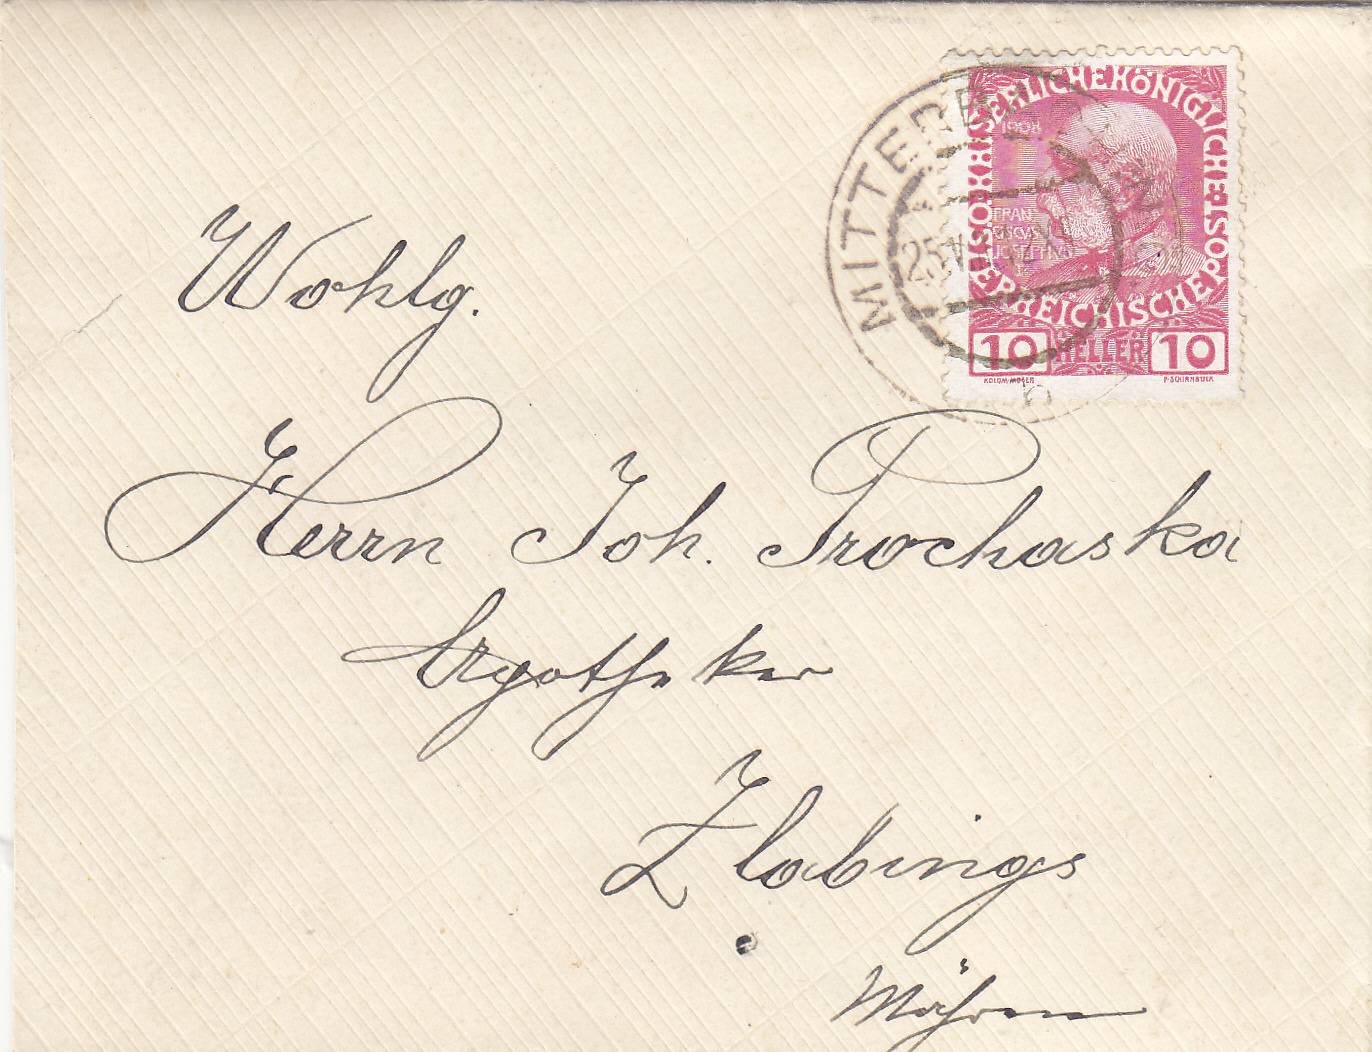 KAISERLICHE KÖNIGLICHE
ÖSTERREICHISCHE POST
1908
FRAN
CISCVS
JOSEPH I
10 HELLER 10
KOLOM·MOSER F·SCHIRNBÖCK
25 V
Wohlg.
Herrn Joh. Prochaska
Apotheker
Zlabings
Mähren